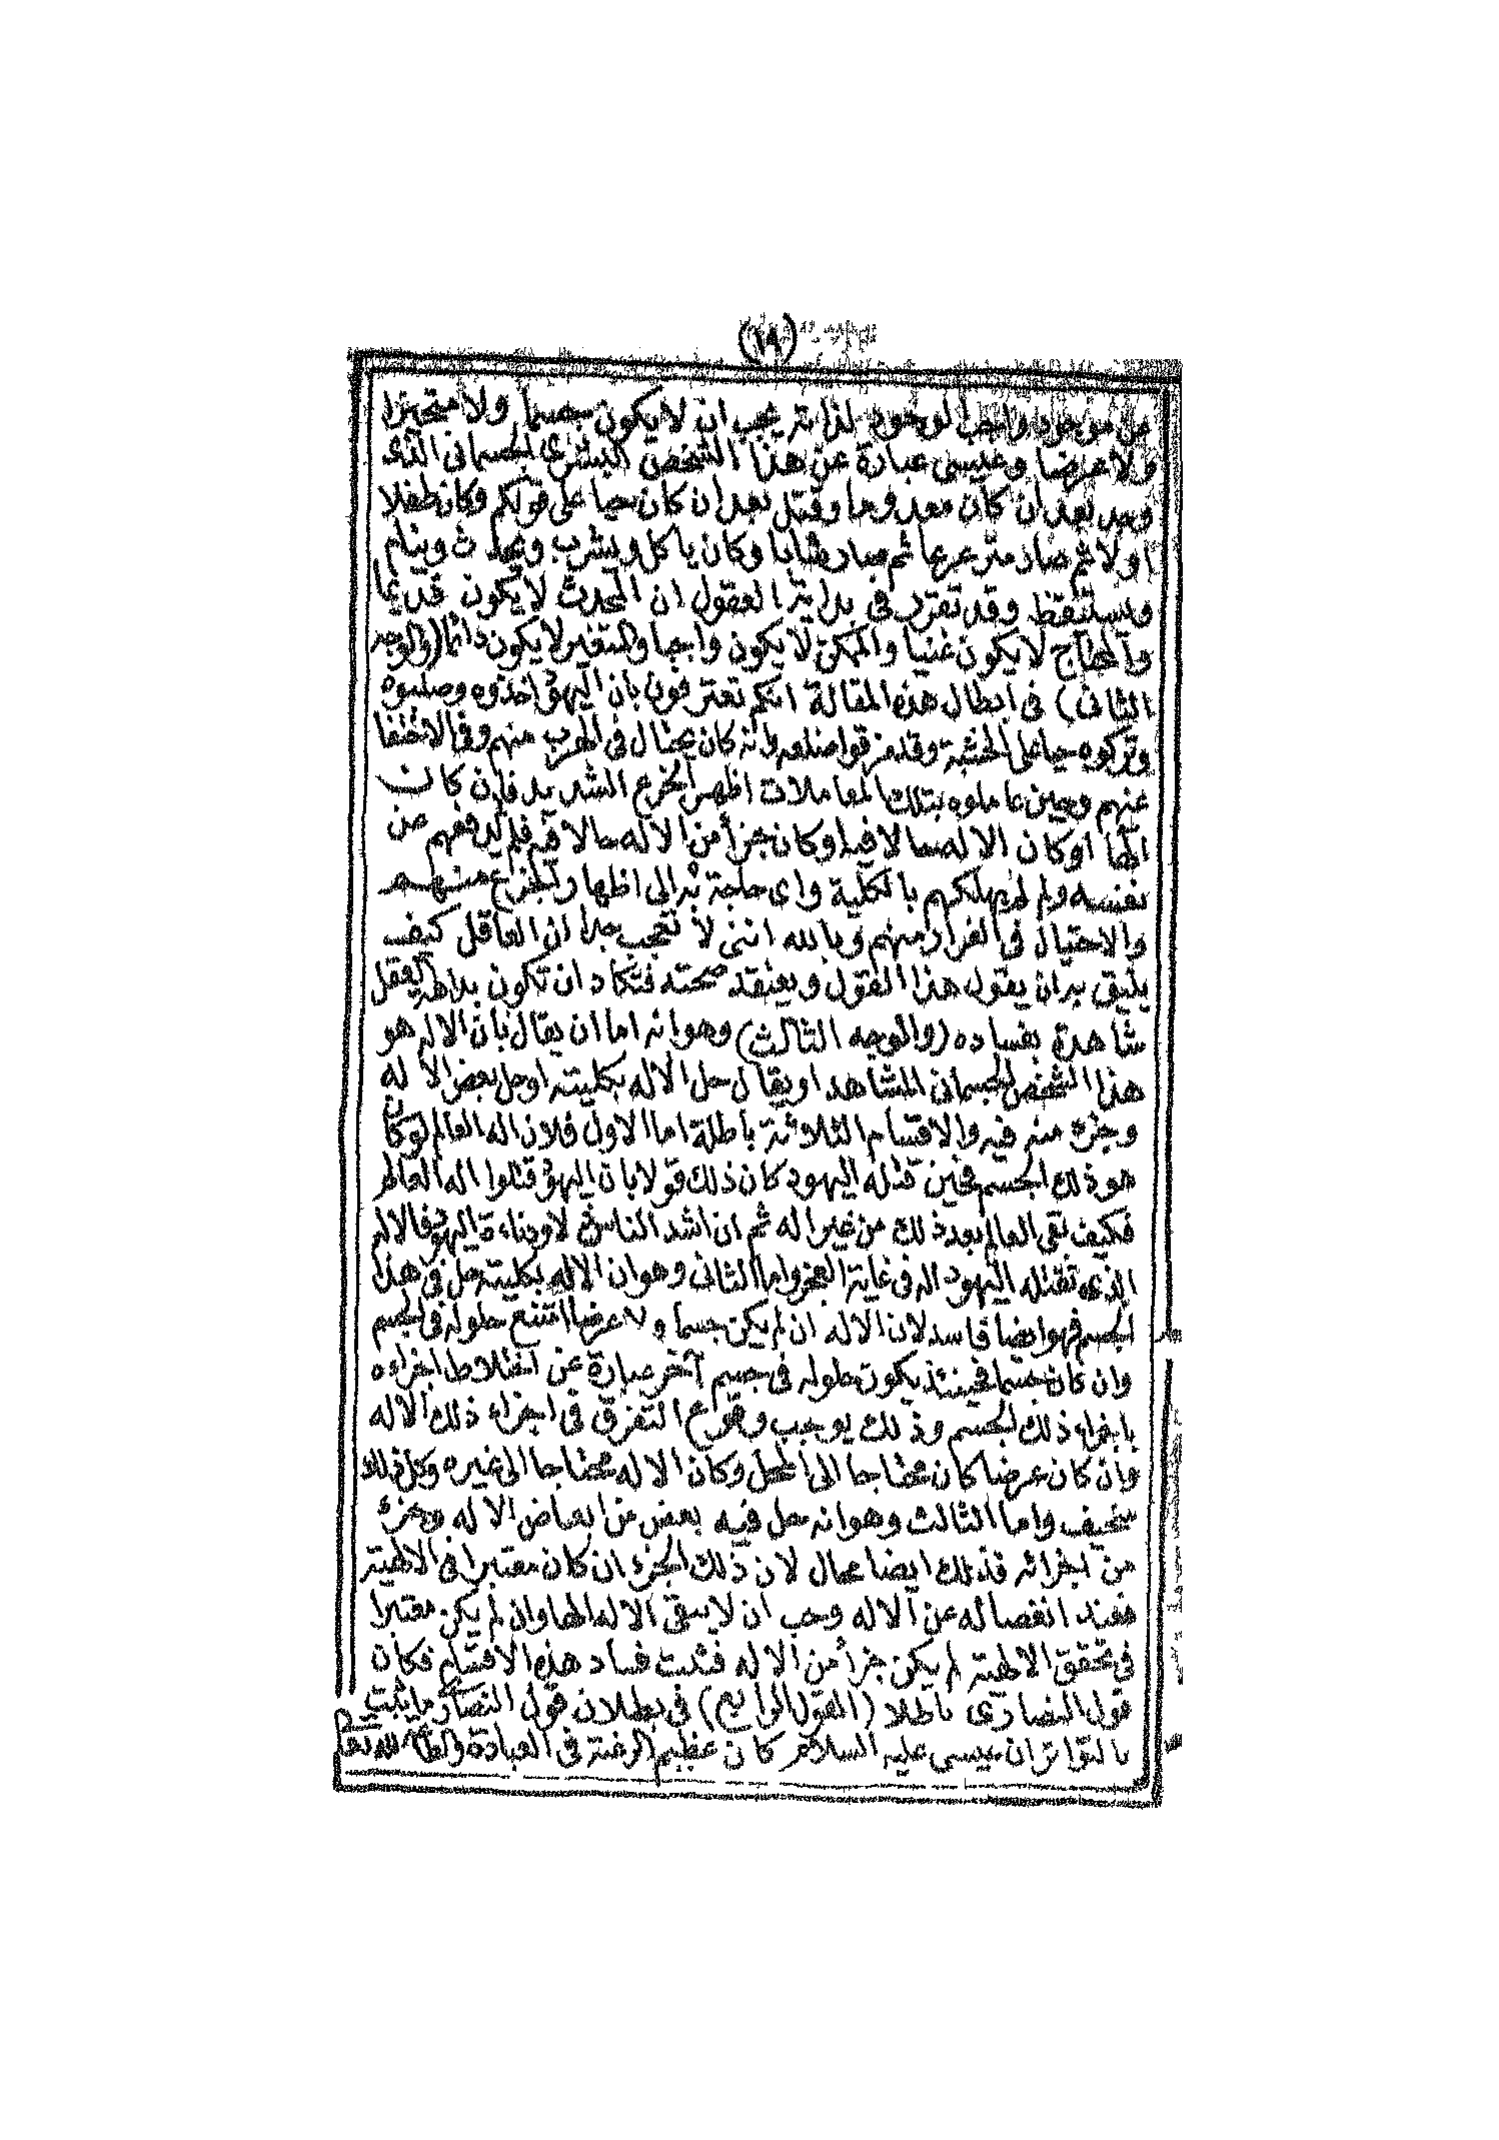 (١٨)
من موجود واجب الوجود لذاته يجب ان لا يكون جسما ولا متحيزا
ولا عرضا وعيسى عبارة عن هذا الشخص البشرى الجسمانى الذى
وجد بعد ان كان معدوما وقتل بعد ان كان حيا على قولكم وكان طفلا
اولا ثم صار مترعرعا ثم صار شابا وكان ياكل ويشرب ويحدث وينام
ويستيقظ وقد تقرر فى بداية العقول ان المحدث لا يكون قديما
والمحتاج لا يكون غنيا والممكن لا يكون واجبا والمتغير لا يكون دائما (والوجه
الثانى) فى ابطال هذه المقالة انكم تعترفون بان اليهود اخذوه وصلبوه
وتركوه حيا على الخشبة وقد مزقوا ضلعه وانه كان يحتال فى الهرب منهم وفى الاختفا
عنهم وحين عاملوه بتلك المعاملات اظهر الجزع الشديد فان كان
الها او كان الاله حالا فيه او كان جزأ من الاله حالا فيه فلم لم يدفعهم عن
نفسه ولم لم يهلكهم بالكلية واى حاجة به الى اظهار الجزع منهم
والاحتيال فى الفرار منهم وبالله اننى لا تعجب جدا ان العاقل كيف
يليق به ان يقول هذا القول ويعتقد صحته فتكاد ان تكون بداهة العقل
شاهدة بفساده (والوجه الثالث) وهو انه اما ان يقال بان الاله هو
هذا الشخص الجسمانى المشاهد او يقال حل الاله بكليته او حل بعض الاله
وجزء منه فيه والاقسام الثلاثة باطلة اما الاول فلان اله العالم لو كان
هو ذلك الجسم فحين قتله اليهود كان ذلك قولا بان اليهود قتلوا اله العالم
فكيف بقى العالم بعد ذلك من غير اله ثم ان اشد الناس ذلا ودناءة اليهود فالاله
الذى تقتله اليهود اله فى غاية العجز واما الثانى وهو ان الاله بكليته حل فى هذا
الجسم فهو ايضا فاسد لان الاله ان لم يكن جسما ولا عرضا امتنع حلوله فى الجسم
وان كان جسما فحينئذ يكون حلوله فى جسم آخر عبارة عن اختلاط اجزاءه
باجزاء ذلك الجسم وذلك يوجب وقوع التفرق فى اجزاء ذلك الاله
وان كان عرضا كان محتاجا الى المحل وكان الاله محتاجا الى غيره وكل ذلك
سخيف واما الثالث وهو انه حل فيه بعض من ابعاض الاله وجزء
من اجزائه فذلك ايضا محال لان ذلك الجزء ان كان معتبرا فى الالهية
فعند انفصاله عن الاله وجب ان لا يبقى الاله الها وان لم يكن معتبرا
فى تحقق الالهية لم يكن جزأ من الاله فثبت فساد هذه الاقسام فكان
قول النصارى باطلا (القول الرابع) فى بطلان قول النصارى ما ثبت
بالتواتر ان عيسى عليه السلام كان عظيم الرغبة فى العبادة والطاعة لله تعالى